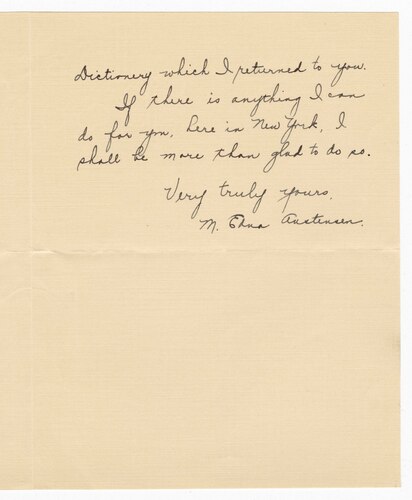 Dictionery which I returned to you.
If there is anything I can
do for you, here in New York, I
shall be more than glad to do so.
Very truly yours,
M. Edna Austensen.